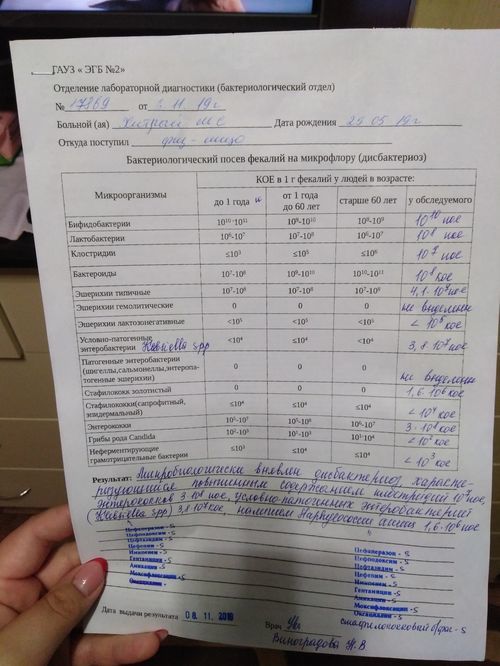 ГАУЗ « ЭГБ №2»
Отделение лабораторной диагностики (бактериологический отдел)
№ 17869 от 11. 19г
Больной (ая) Хитрый Дата рождения 25 05 19г
Откуда поступил физ - лицо
Бактериологический посев фекалий на микрофлору (дисбактериоз)
Микроорганизмы КОЕ в 1 г фекалий у людей в возрасте:
до 1 года от 1 года до 60 лет старше 60 лет у обследуемого
Бифидобактерии 10¹⁰-10¹¹ 10⁹-10¹⁰ 10⁸-10⁹ 10¹⁰ кое
Лактобактерии 10⁶-10⁷ 10⁷-10⁸ 10⁶-10⁷ 10⁸ кое
Клостридии ≤10³ ≤10⁵ ≤10⁶ кое
Бактероиды 10⁷-10⁸ 10⁹-10¹⁰ 10¹⁰-10¹¹ 10⁸ кое
Эшерихии типичные 10⁷-10⁸ 10⁷-10⁸ 10⁷-10⁸ 4,1· 10⁷ кое
Эшерихии гемолитические 0 0 0 не выделены
Эшерихии лактозонегативные <10⁵ <10⁵ <10⁵ < 10⁵ кое
Условно-патогенные
энтеробактерии Klebsiella spp <10⁴ ≤10⁴ <10⁴ 3,8·10⁷ кое
Патогенные энтеробактерии
(шигеллы,сальмонеллы,энтеропа-
тогенные эшерихии) 0 0 0 не выделены
Стафилококк золотистый 0 0 0 1,6·10⁶ кое
Стафилококки(сапрофитный,
эпидермальный) ≤10⁴ ≤10⁴ ≤10⁴ < 10⁴ кое
Энтерококки 10⁵-10⁷ 10⁵-10⁸ 10⁶-10⁷ 3·10⁸ кое
Грибы рода Candida 10²-10³ 10¹-10³ 10³-10⁴ <10⁴ кое
Неферментирующие
грамотрицательные бактерии ≤10³ ≤10⁴ ≤10⁴ < 10³ кое
Результат: Микробиологически выявлен дисбактериоз, характе-
ризующийся повышенным содержанием клостридий 10⁷ кое,
энтерококков 3·10⁸ кое, условно-патогенных энтеробактерий
Klebsiella spp 3,8·10⁷ кое, наличием 1,6·10⁶ кое
Цефоперазон - S
Цефподоксим - S
Цефтазидим - S
Цефепим - S
Имипенем - S
Гентамицин - S
Амикацин - S
Моксифлоксацин - S
Оксациллин -
Цефоперазон - S
Цефподоксим - S
Цефтазидим - S
Цефепим - S
Имипенем - S
Гентамицин - S
Амикацин - S
Моксифлоксацин - S
Оксациллин - S
стафилококковый б/фаг - S
Дата выдачи результата 08. 11. Врач
Виноградова